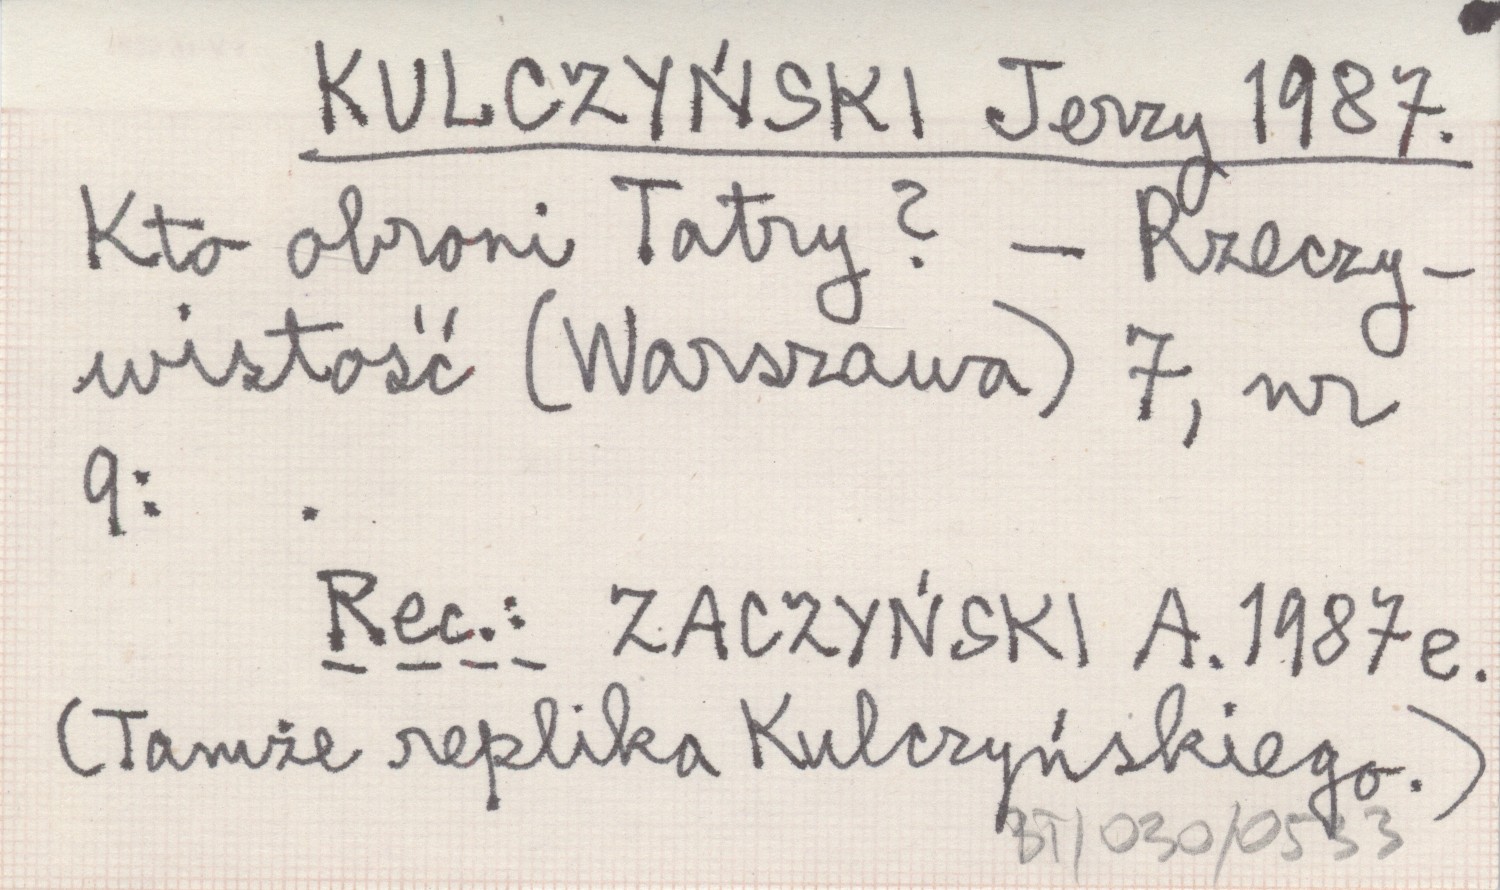 KULCZYŃSKI Jerzy 1987.
Kto obroni Tatry? – Rzeczy-
wistość (Warszawa) 7, nr
9: .
Rec.: ZACZYŃSKI A. 1987e.
(Tamże replika Kulczyńskiego.)
BT/030/0533